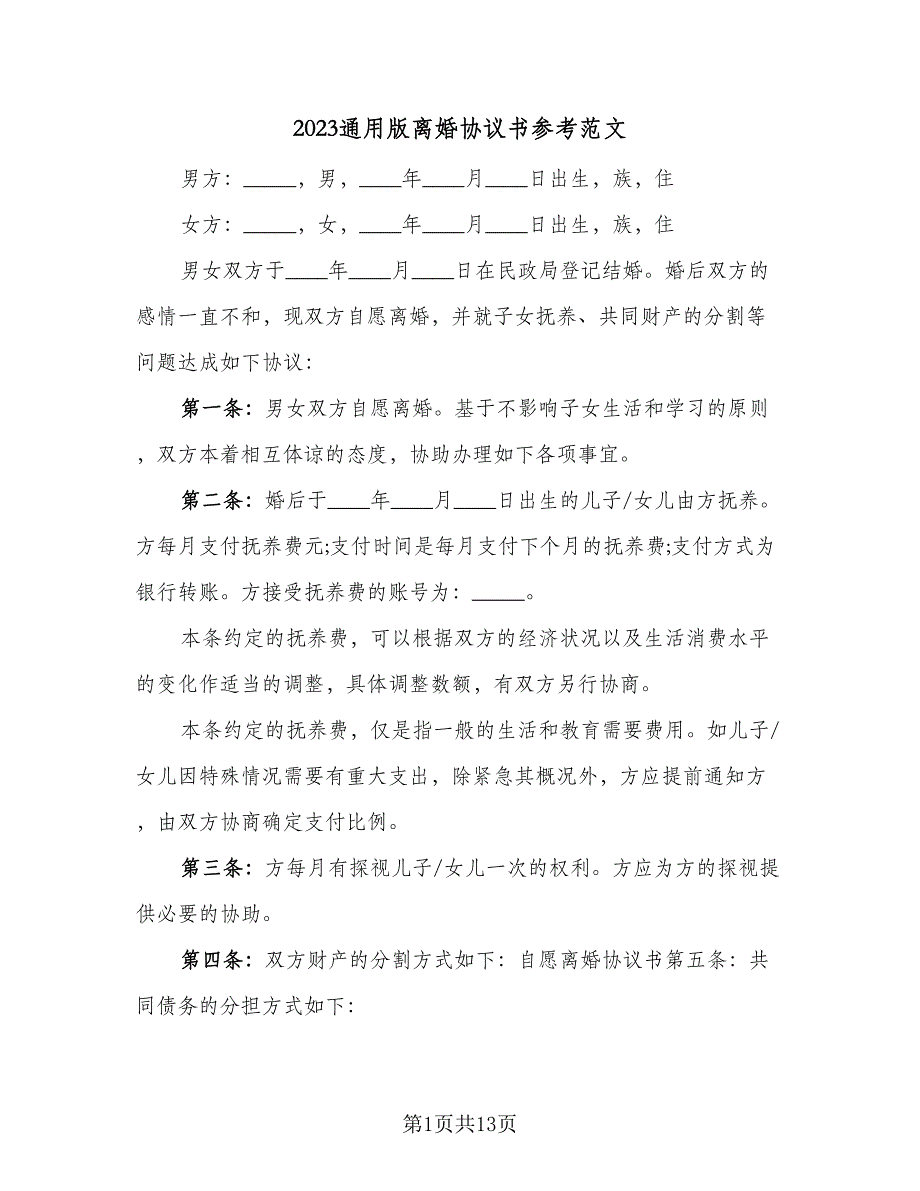 2023通用版离婚协议书参考范文
男方：_____，男，____年____月____日出生，族，住
女方：_____，女，____年____月____日出生，族，住
男女双方于____年____月____日在民政局登记结婚。婚后双方的
感情一直不和，现双方自愿离婚，并就子女抚养、共同财产的分割等
问题达成如下协议：
第一条：男女双方自愿离婚。基于不影响子女生活和学习的原则
，双方本着相互体谅的态度，协助办理如下各项事宜。
第二条：婚后于____年____月____日出生的儿子/女儿由方抚养。
方每月支付抚养费元;支付时间是每月支付下个月的抚养费;支付方式为
银行转账。方接受抚养费的账号为：_____。
本条约定的抚养费，可以根据双方的经济状况以及生活消费水平
的变化作适当的调整，具体调整数额，有双方另行协商。
本条约定的抚养费，仅是指一般的生活和教育需要费用。如儿子/
女儿因特殊情况需要有重大支出，除紧急其概况外，方应提前通知方
，由双方协商确定支付比例。
第三条：方每月有探视儿子/女儿一次的权利。方应为方的探视提
供必要的协助。
第四条：双方财产的分割方式如下：自愿离婚协议书第五条：共
同债务的分担方式如下：
第1页共13页